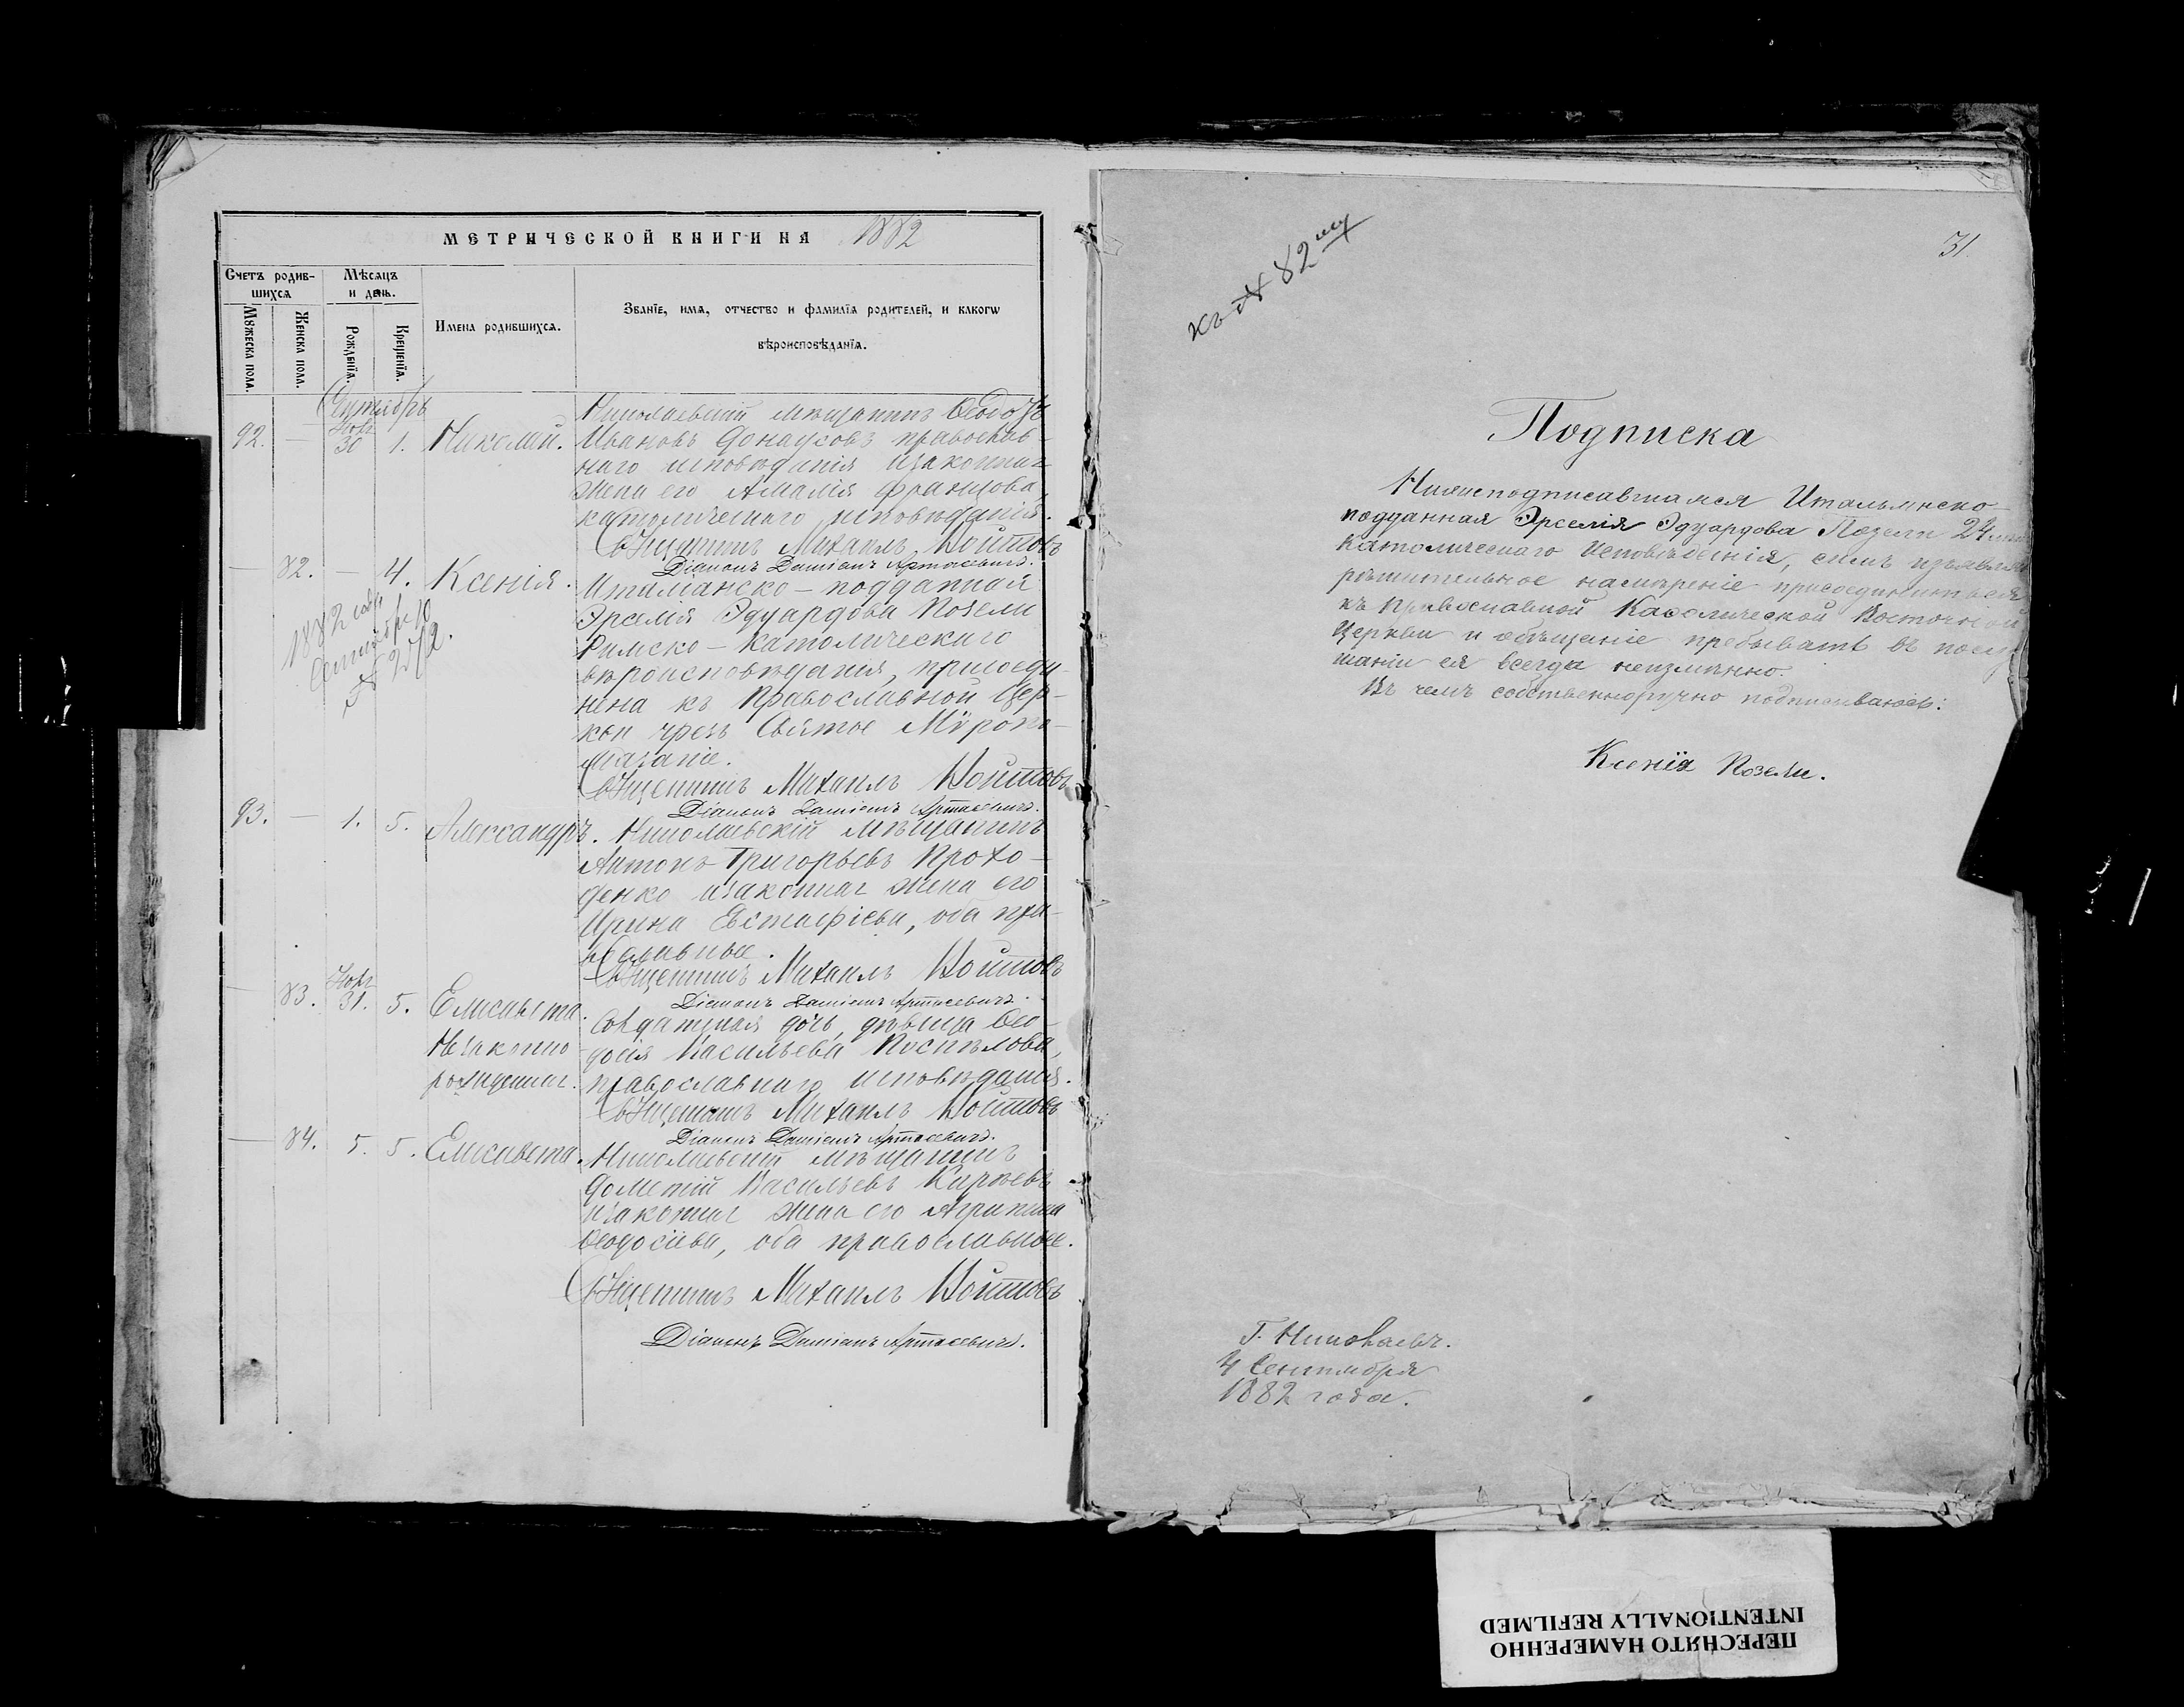 МЕТРИЧЕСКОЙ КНИГИ НА 1882
Счетъ родив-
шихся
Мѣсяцъ
и день.
Мꙋжеска пола.
Женска пола.
Рожденїя.
Крещенїя.
Имена родившихся.
Званїе, имя, отчество и фамилїя родителей, и какогѡ
вѣроисповѣданїя.
Сентябрь
92. — 30 1. Николай.
Николаевскій мѣщанинъ Ѳеодоръ
Ивановъ Донаусовъ православ-
наго исповѣданія и законная
жена его Амалія Францова,
католическаго исповѣданія.
Священникъ Михаилъ Войтовъ
Діаконъ Даміанъ Артасевичъ.
— 82. — 4. Ксенія.
1882 года
Сентября 10
№ 2572.
Италіанско-подданная
Эрселія Эдуардова Позели
Римско-католическаго
вѣроисповѣданія, присоеди-
нена къ Православной Цер-
кви чрезъ Святое Мѵропо-
мазаніе.
Священникъ Михаилъ Войтовъ
Діаконъ Даміанъ Артасевичъ.
93. — 1. 5. Александръ.
Николаевскій мѣщанинъ
Антонъ Григорьевъ Прохо-
денко и законная жена его
Ирина Евстафіева, оба пра-
вославные.
Священникъ Михаилъ Войтовъ
Діаконъ Даміанъ Артасевичъ.
— 83. 31. 5. Елисавета
Незаконно-
рожденная.
Солдатская дочь, дѣвица Ѳео-
досія Васильева Поспѣлова,
православнаго исповѣданія.
Священникъ Михаилъ Войтовъ
Діаконъ Даміанъ Артасевичъ.
— 84. 5. 5. Елисавета.
Николаевскій мѣщанинъ
Дометій Васильевъ Киреевъ
и законная жена его Агрипина
Ѳеодосіева, оба православные.
Священникъ Михаилъ Войтовъ
Діаконъ Даміанъ Артасевичъ.
31.
къ № 82му
Подписка
Нижеподписавшаяся Итальянско-
подданная Эрселія Эдуардова Позели 24 лѣтъ
Католическаго Исповѣданія, симъ изъявляю
рѣшительное намѣреніе присоединиться
къ Православной Каѳолической Восточной
Церкви и обѣщаніе пребывать въ послу-
шаніи ея всегда неизмѣнно.
Въ чемъ собственноручно подписываюсь:
Ксенія Позели.
Г. Николаевъ.
4 Сентября
1882 года.
ПЕРЕСНЯТО НАМЕРЕННО
INTENTIONALLY REFILMED